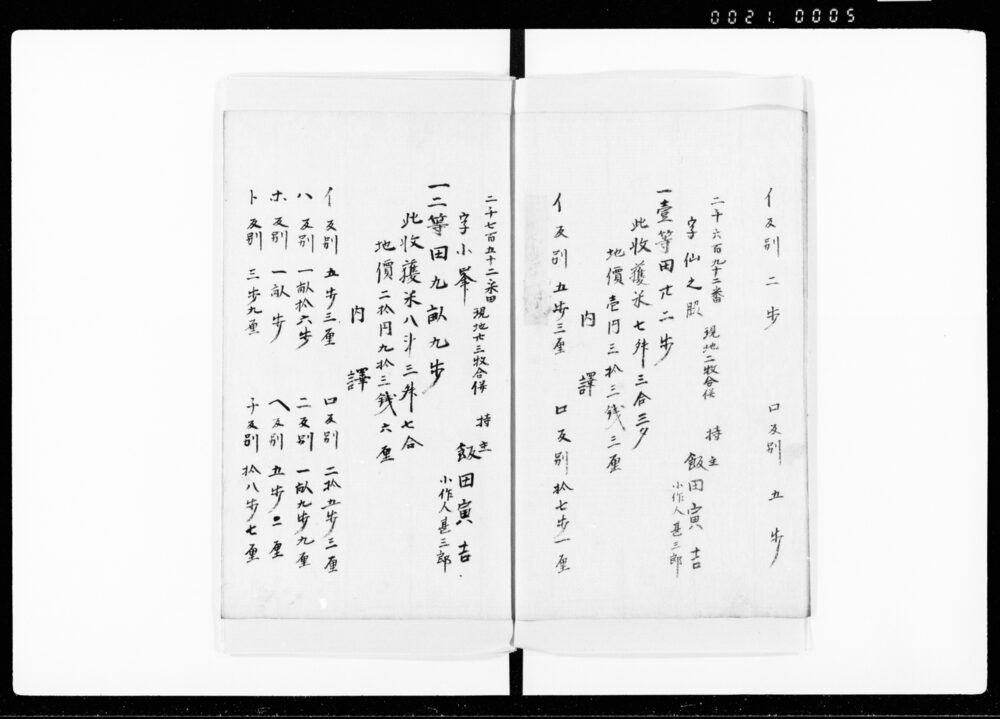 0021.0005
イ反別二歩 ロ反別五歩
二千六百九十二番 現地二牧合併
字仙之殿 持主 飯田寅吉
小作人甚三郎
一壹等田廿二歩
此收獲米七舛三合三夕
地價壱円三拾三銭三厘
内譯
イ反別五歩三厘 ロ反別拾七歩一厘
二千七百五十二番 現地廿三牧合併
字小峯 持主 飯田寅吉
小作人甚三郎
一二等田九畝九歩
此收獲米八斗三舛七合
地價二拾円九拾三銭六厘
内譯
イ反別五歩三厘 ロ反別二拾五歩三厘
ハ反別一畝拾六歩 二反別一畝九歩九厘
ホ反別一畝歩 ヘ反別五歩二厘
ト反別三歩九厘 チ反別拾八歩七厘